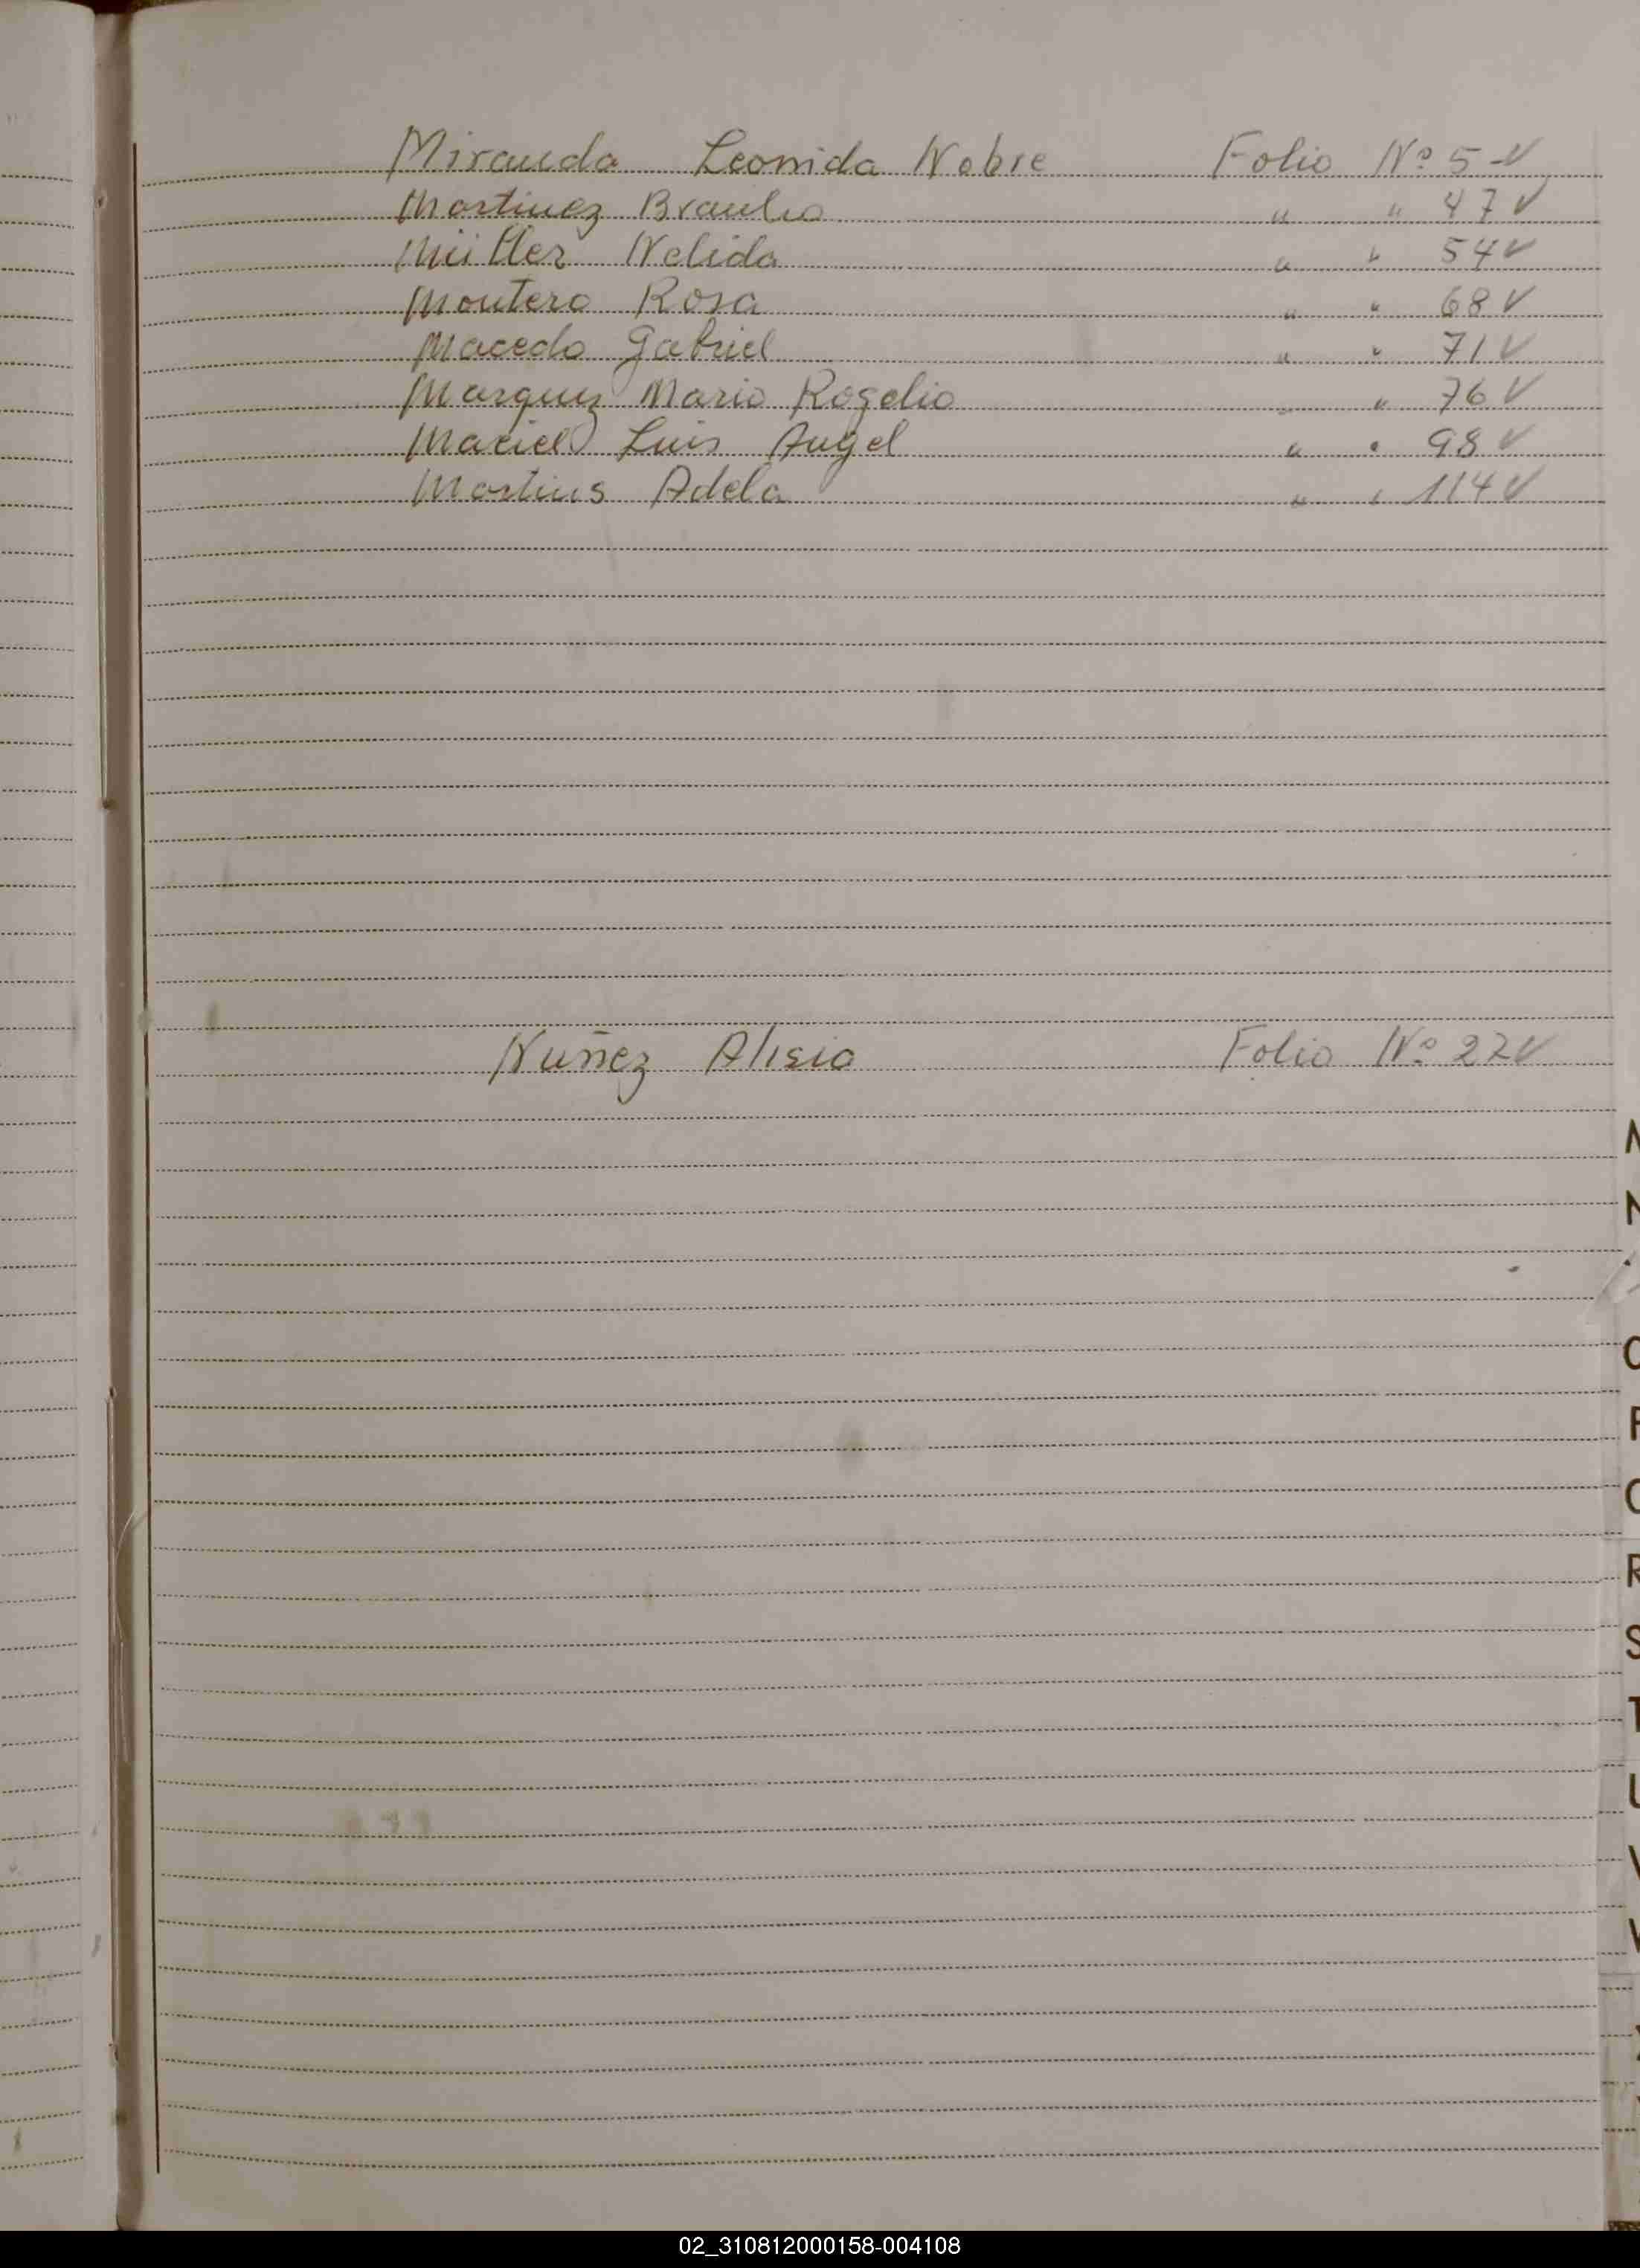 Miranda Leonida Nobre Folio Nº 5 ✓
Martinez Braulio " " 47 ✓
Müller Nelida " " 54 ✓
Montero Rosa " " 68 ✓
Macedo Gabriel " " 71 ✓
Marquez Mario Rogelio " " 76 ✓
Maciel Luis Angel " " 98 ✓
Martins Adela " " 114 ✓
Nuñez Alisio Folio Nº 27 ✓
M
N
O
P
Q
R
S
T
U
V
W
02_310812000158-004108